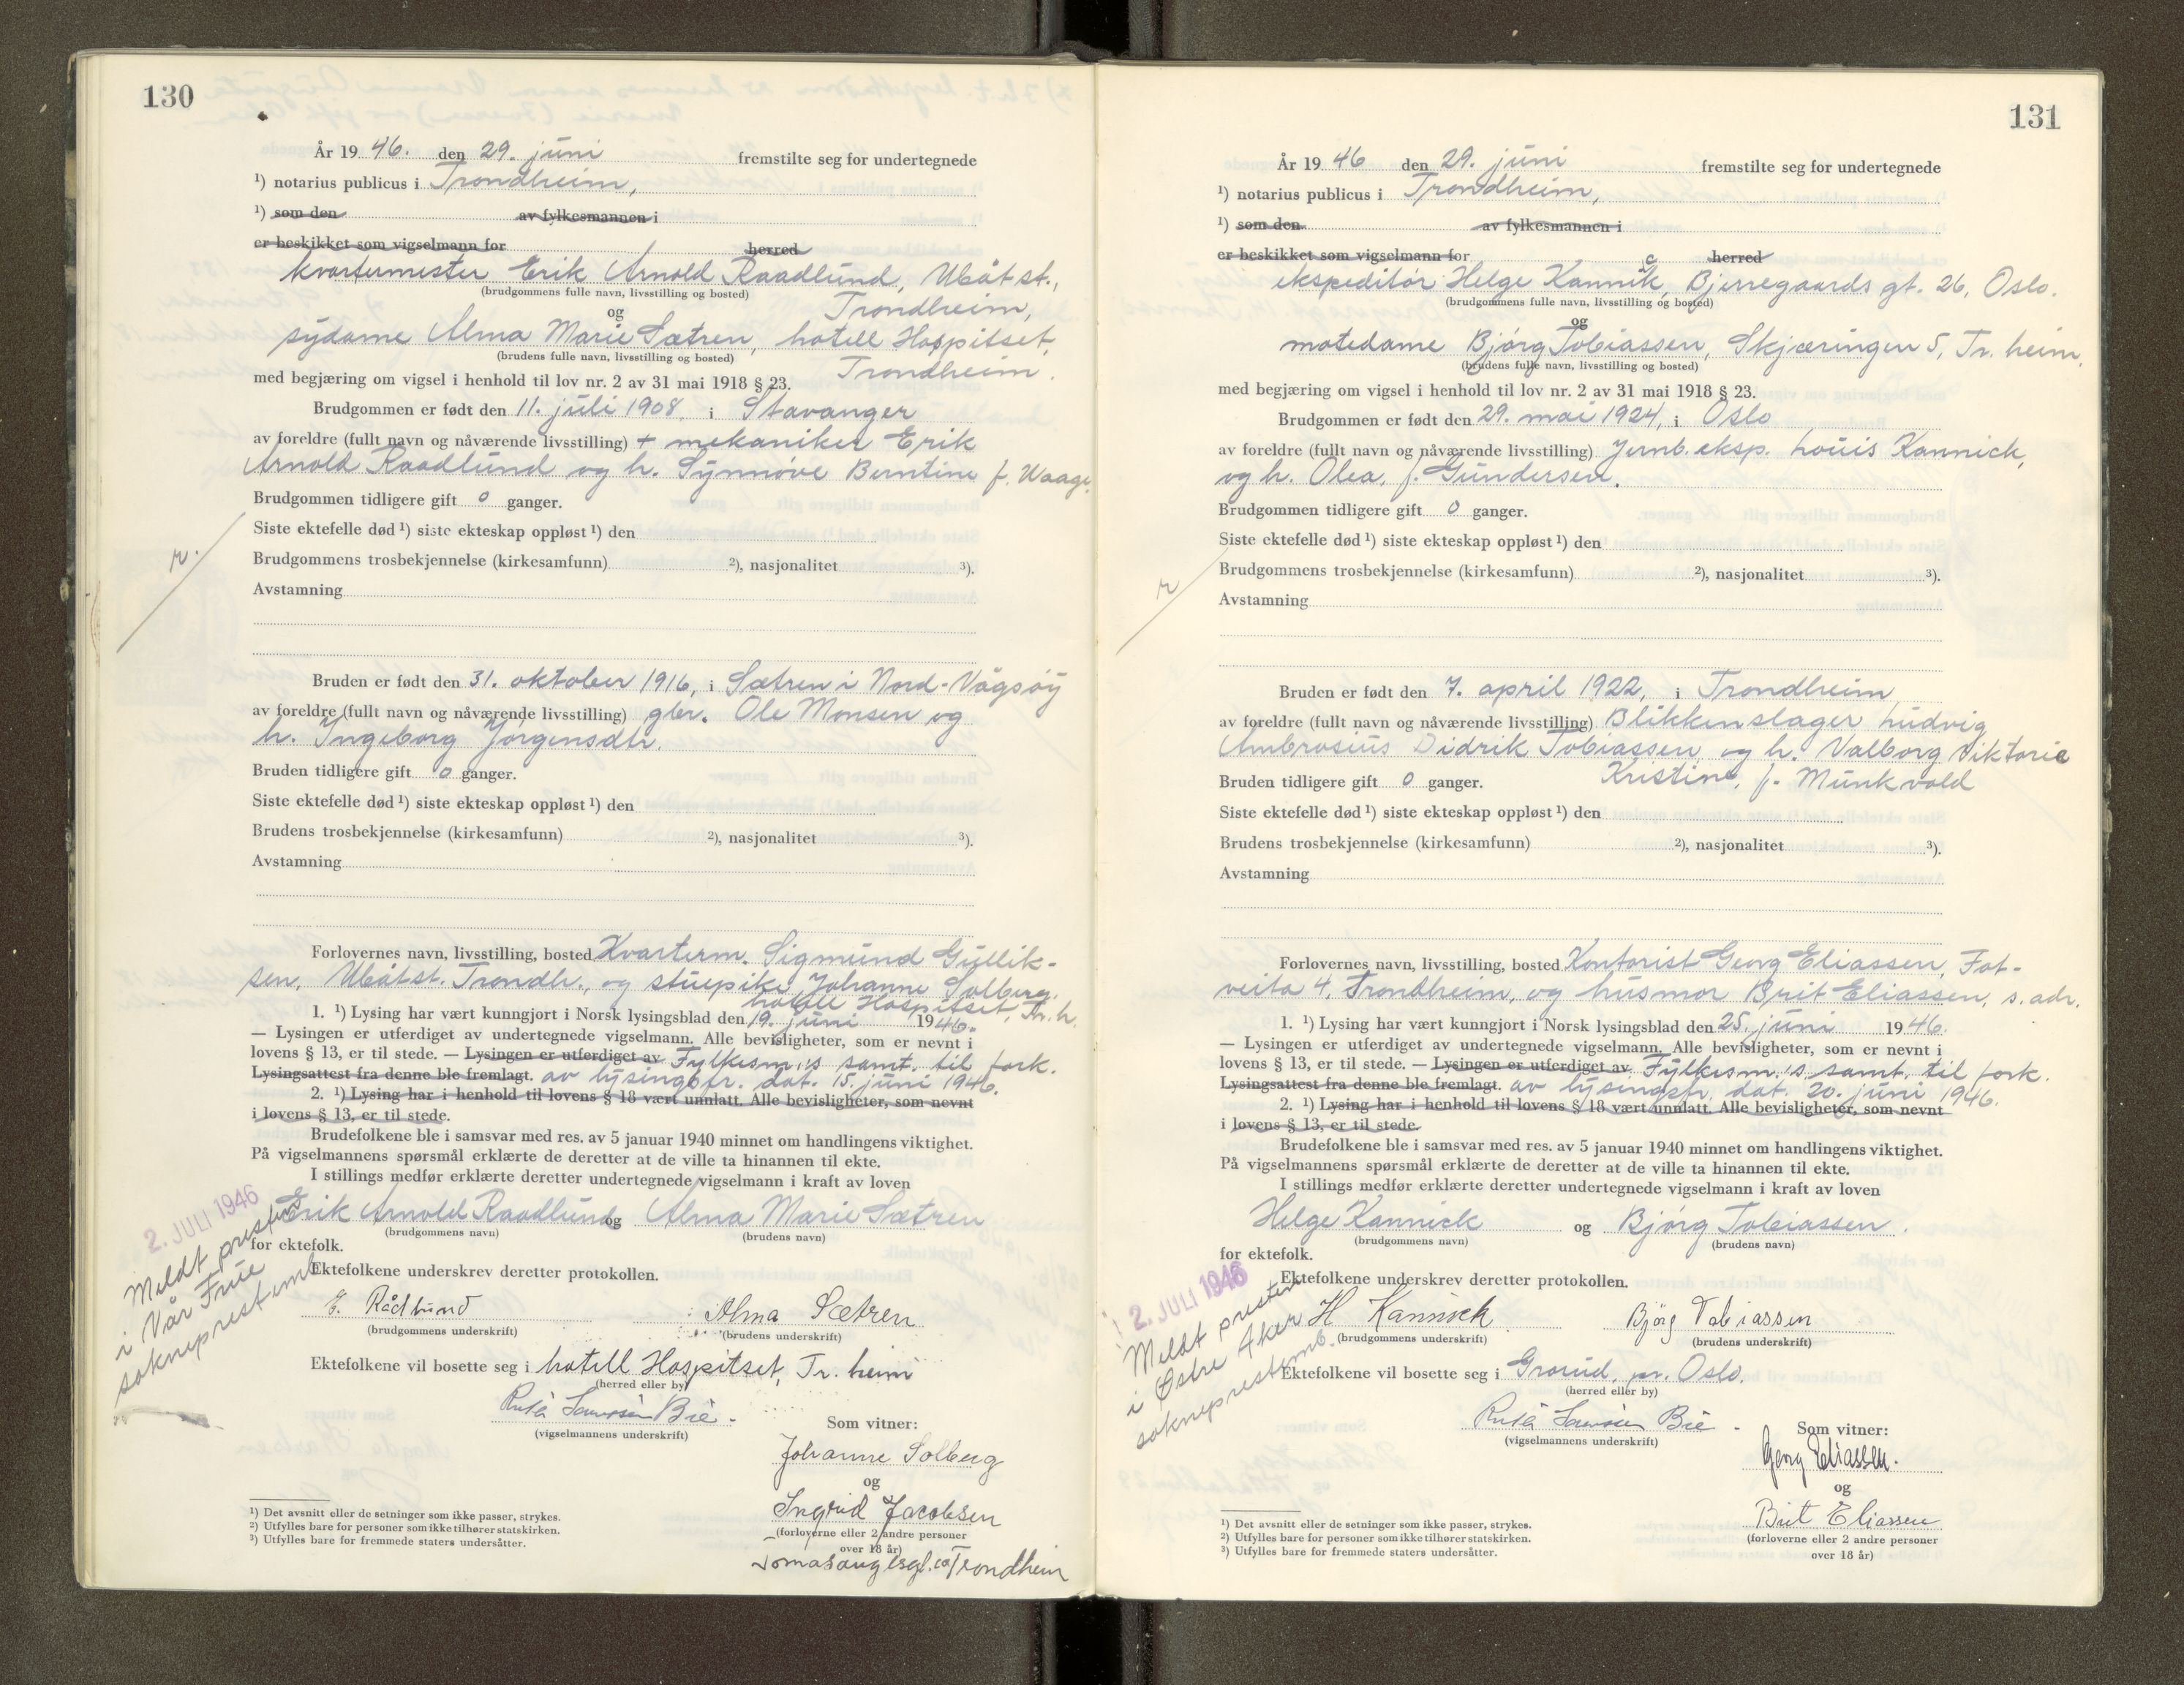 130
År 19 46. den 29. juni fremstilte seg for undertegnede
¹) notarius publicus i Trondheim,
¹) som den av fylkesmannen i
er beskikket som vigselmann for herred
kvartermester Erik Arnold Raadlund, Ubåtst.,
(brudgommens fulle navn, livsstilling og bosted)
Trondheim,
og
sydame Alma Marie Sætren, hotell Hospitset,
(brudens fulle navn, livsstilling og bosted)
Trondheim.
med begjæring om vigsel i henhold til lov nr. 2 av 31 mai 1918 § 23.
Brudgommen er født den 11. juli 1908, i Stavanger
av foreldre (fullt navn og nåværende livsstilling) + mekaniker Erik
Arnold Raadlund og h. Synnøve Berntine f. Waage.
Brudgommen tidligere gift 0 ganger.
Siste ektefelle død ¹) siste ekteskap oppløst ¹) den
Brudgommens trosbekjennelse (kirkesamfunn) ²), nasjonalitet ³).
Avstamning
r.
Bruden er født den 31. oktober 1916, i Sætren i Nord-Vågsøy
av foreldre (fullt navn og nåværende livsstilling) gbr. Ole Monsen og
h. Ingeborg Jørgensdtr.
Bruden tidligere gift 0 ganger.
Siste ektefelle død ¹) siste ekteskap oppløst ¹) den
Brudens trosbekjennelse (kirkesamfunn) ²), nasjonalitet ³).
Avstamning
Forlovernes navn, livsstilling, bosted Kvarterm. Sigmund Gullik-
sen, Ubåtst. Trondh., og stuepike Johanne Solberg,
hotell Hospitset, Tr.h.
1. ¹) Lysing har vært kunngjort i Norsk lysingsblad den 19. juni 1946.
— Lysingen er utferdiget av undertegnede vigselmann. Alle bevisligheter, som er nevnt i
lovens § 13, er til stede. — Lysingen er utferdiget av Fylkesm.'s samt. til fork.
Lysingsattest fra denne ble fremlagt. av lysingsfr. dat. 15. juni 1946.
2. ¹) Lysing har i henhold til lovens § 18 vært unnlatt. Alle bevisligheter, som nevnt
i lovens § 13, er til stede.
Brudefolkene ble i samsvar med res. av 5 januar 1940 minnet om handlingens viktighet.
På vigselmannens spørsmål erklærte de deretter at de ville ta hinannen til ekte.
I stillings medfør erklærte deretter undertegnede vigselmann i kraft av loven
Erik Arnold Raadlund og Alma Marie Sætren
(brudgommens navn) (brudens navn)
for ektefolk.
2. JULI 1946
Meldt presten
i Vår Frue
sokneprestemb.
Ektefolkene underskrev deretter protokollen.
E. Rådlund Alma Sætren
(brudgommens underskrift) (brudens underskrift)
Ektefolkene vil bosette seg i hotell Hospitset, Tr. heim
(herred eller by)
Bie
(vigselmannens underskrift)
Som vitner:
Johanne Solberg
og
Ingrid Jacobsen
(forloverne eller 2 andre personer
over 18 år)
Trondheim
¹) Det avsnitt eller de setninger som ikke passer, strykes.
²) Utfylles bare for personer som ikke tilhører statskirken.
³) Utfylles bare for fremmede staters undersåtter.
131
År 19 46 den 29. juni fremstilte seg for undertegnede
¹) notarius publicus i Trondheim,
¹) som den av fylkesmannen i
er beskikket som vigselmann for herred
ekspeditør Helge Kannik, Bjerregaards gt. 26, Oslo.
c
(brudgommens fulle navn, livsstilling og bosted)
og
motedame Bjørg Tobiassen, Skjæringen 5, Tr. heim.
(brudens fulle navn, livsstilling og bosted)
med begjæring om vigsel i henhold til lov nr. 2 av 31 mai 1918 § 23.
Brudgommen er født den 29. mai 1924, i Oslo
av foreldre (fullt navn og nåværende livsstilling) Jernb. eksp. Louis Kannick,
og h. Olea, f. Gundersen.
Brudgommen tidligere gift 0 ganger.
Siste ektefelle død ¹) siste ekteskap oppløst ¹) den
Brudgommens trosbekjennelse (kirkesamfunn) ²), nasjonalitet ³).
Avstamning
r
Bruden er født den 7. april 1922, i Trondheim
av foreldre (fullt navn og nåværende livsstilling) Blikkenslager Ludvig
Ambrosius Didrik Tobiassen og h. Valborg Viktoria
Kristine, f. Munkvold
Bruden tidligere gift 0 ganger.
Siste ektefelle død ¹) siste ekteskap oppløst ¹) den
Brudens trosbekjennelse (kirkesamfunn) ²), nasjonalitet ³).
Avstamning
Forlovernes navn, livsstilling, bosted Kontorist Georg Eliassen, Fot-
veita 4, Trondheim, og husmor Brit Eliassen, s. adr.
1. ¹) Lysing har vært kunngjort i Norsk lysingsblad den 25. juni 1946.
— Lysingen er utferdiget av undertegnede vigselmann. Alle bevisligheter, som er nevnt i
lovens § 13, er til stede. — Lysingen er utferdiget av Fylkesm.'s samt. til fork.
Lysingsattest fra denne ble fremlagt. av lysingsfr. dat. 20. juni 1946.
2. ¹) Lysing har i henhold til lovens § 18 vært unnlatt. Alle bevisligheter, som nevnt
i lovens § 13, er til stede.
Brudefolkene ble i samsvar med res. av 5 januar 1940 minnet om handlingens viktighet.
På vigselmannens spørsmål erklærte de deretter at de ville ta hinannen til ekte.
I stillings medfør erklærte deretter undertegnede vigselmann i kraft av loven
Helge Kannick og Bjørg Tobiassen.
(brudgommens navn) (brudens navn)
for ektefolk.
2. JULI 1946
Meldt presten
i Østre Aker
sokneprestemb.
Ektefolkene underskrev deretter protokollen.
H Kannick Bjørg Tobiassen
(brudgommens underskrift) (brudens underskrift)
Ektefolkene vil bosette seg i Grorud, pr. Oslo.
(herred eller by)
Bie
(vigselmannens underskrift)
Som vitner:
Georg Eliassen.
og
Brit Eliassen
(forloverne eller 2 andre personer
over 18 år)
¹) Det avsnitt eller de setninger som ikke passer, strykes.
²) Utfylles bare for personer som ikke tilhører statskirken.
³) Utfylles bare for fremmede staters undersåtter.